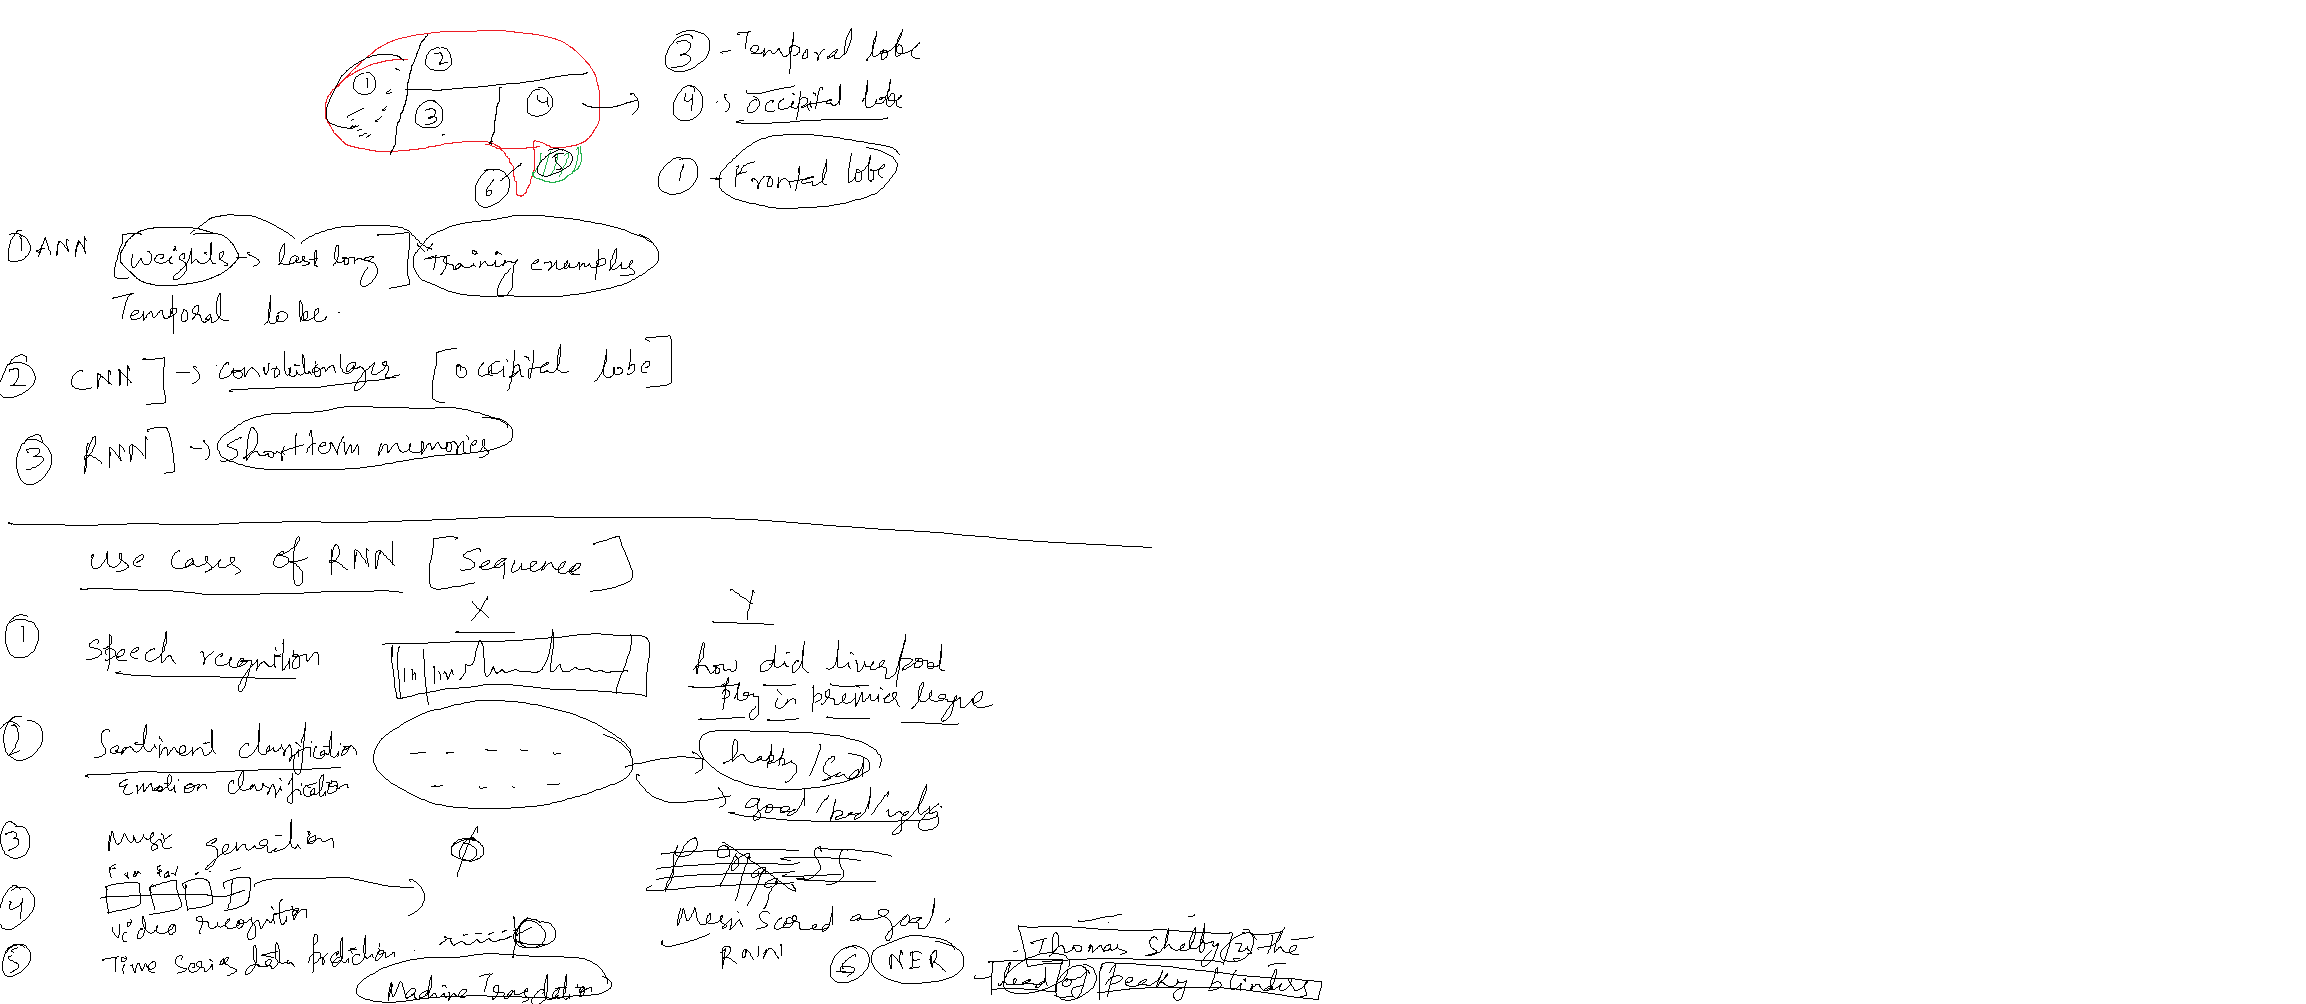 ① ② ③ ④ ⑤ ⑥
③ - Temporal lobe
④ → occipital lobe
① - Frontal lobe
① ANN [weights → last long] training examples
Temporal lobe.
② CNN] → convolution layer [occipital lobe]
③ RNN] → short term memories
use cases of RNN [Sequence]
X Y
① Speech recognition how did liverpool
play in premier league
② Sentiment classification happy/sad
Emotion classification good/bad/ugly
③ Music generation ϕ
④ Video recognition Messi scored a goal.
⑤ Time series data prediction RNN
Machine Translation
⑥ NER - Thomas Shelby is the
lead of peaky blinders